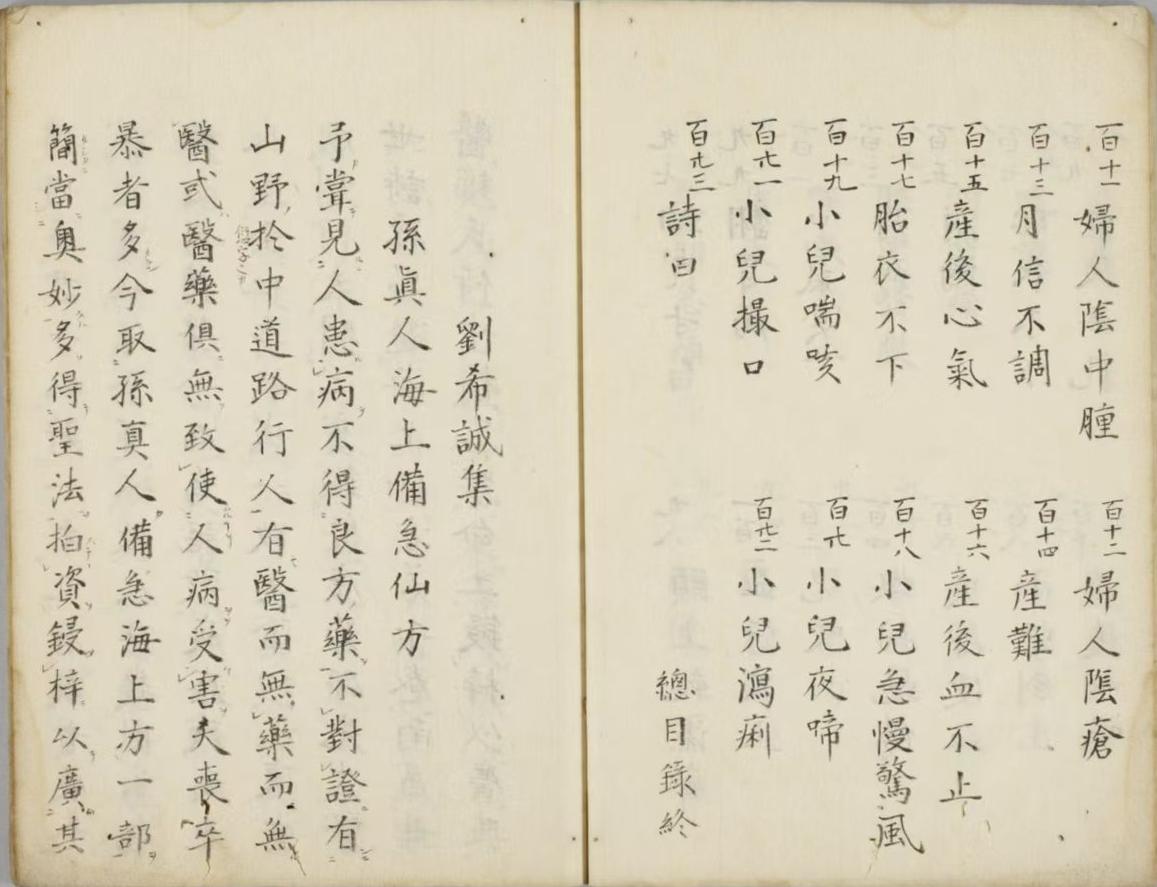 百十一 婦人陰中腫 百十二 婦人陰瘡
百十三 月信不調 百十四 産難
百十五 産後心氣 百十六 産後血不止
百十七 胎衣不下 百十八 小兒急慢驚風
百十九 小兒喘咳 百廿 小兒夜啼
百廿一 小兒撮口 百廿二 小兒瀉痢
百廿三 詩曰
總目録終
劉希誠集
孫眞人海上備急仙方
予甞見人患病不得良方藥不對證有
山野於中道路行人有醫而無藥而無
醫或醫藥倶無致使人病受害夫喪卒
暴者多今取孫真人備急海上方一部
簡當奥妙多得聖法拍資鋟梓以廣其